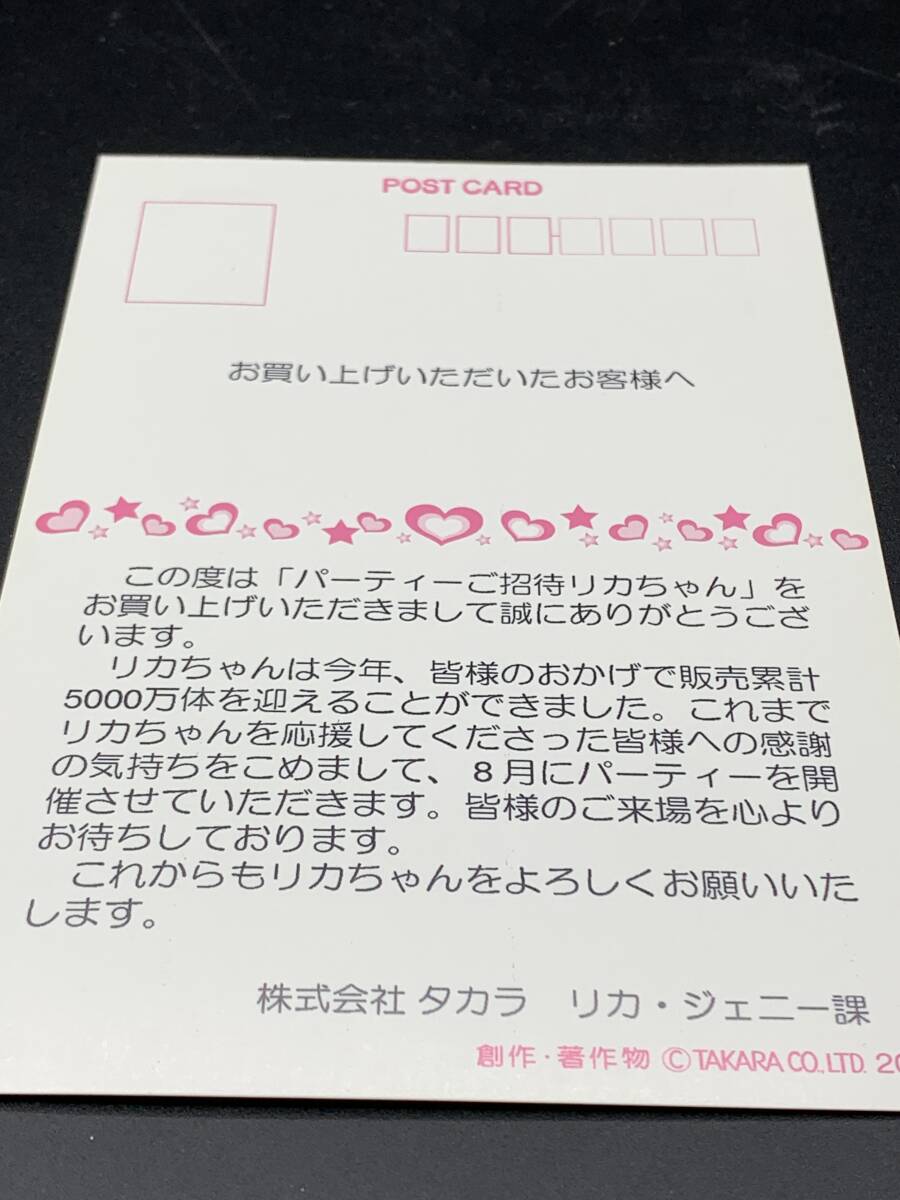 POST CARD
お買い上げいただいたお客様へ
この度は「パーティーご招待リカちゃん」を
お買い上げいただきまして誠にありがとうござ
います。
リカちゃんは今年、皆様のおかげで販売累計
5000万体を迎えることができました。これまで
リカちゃんを応援してくださった皆様への感謝
の気持ちをこめまして、８月にパーティーを開
催させていただきます。皆様のご来場を心より
お待ちしております。
これからもリカちゃんをよろしくお願いいた
します。
株式会社 タカラ　リカ・ジェニー課
創作・著作物 ©TAKARA CO.,LTD. 20